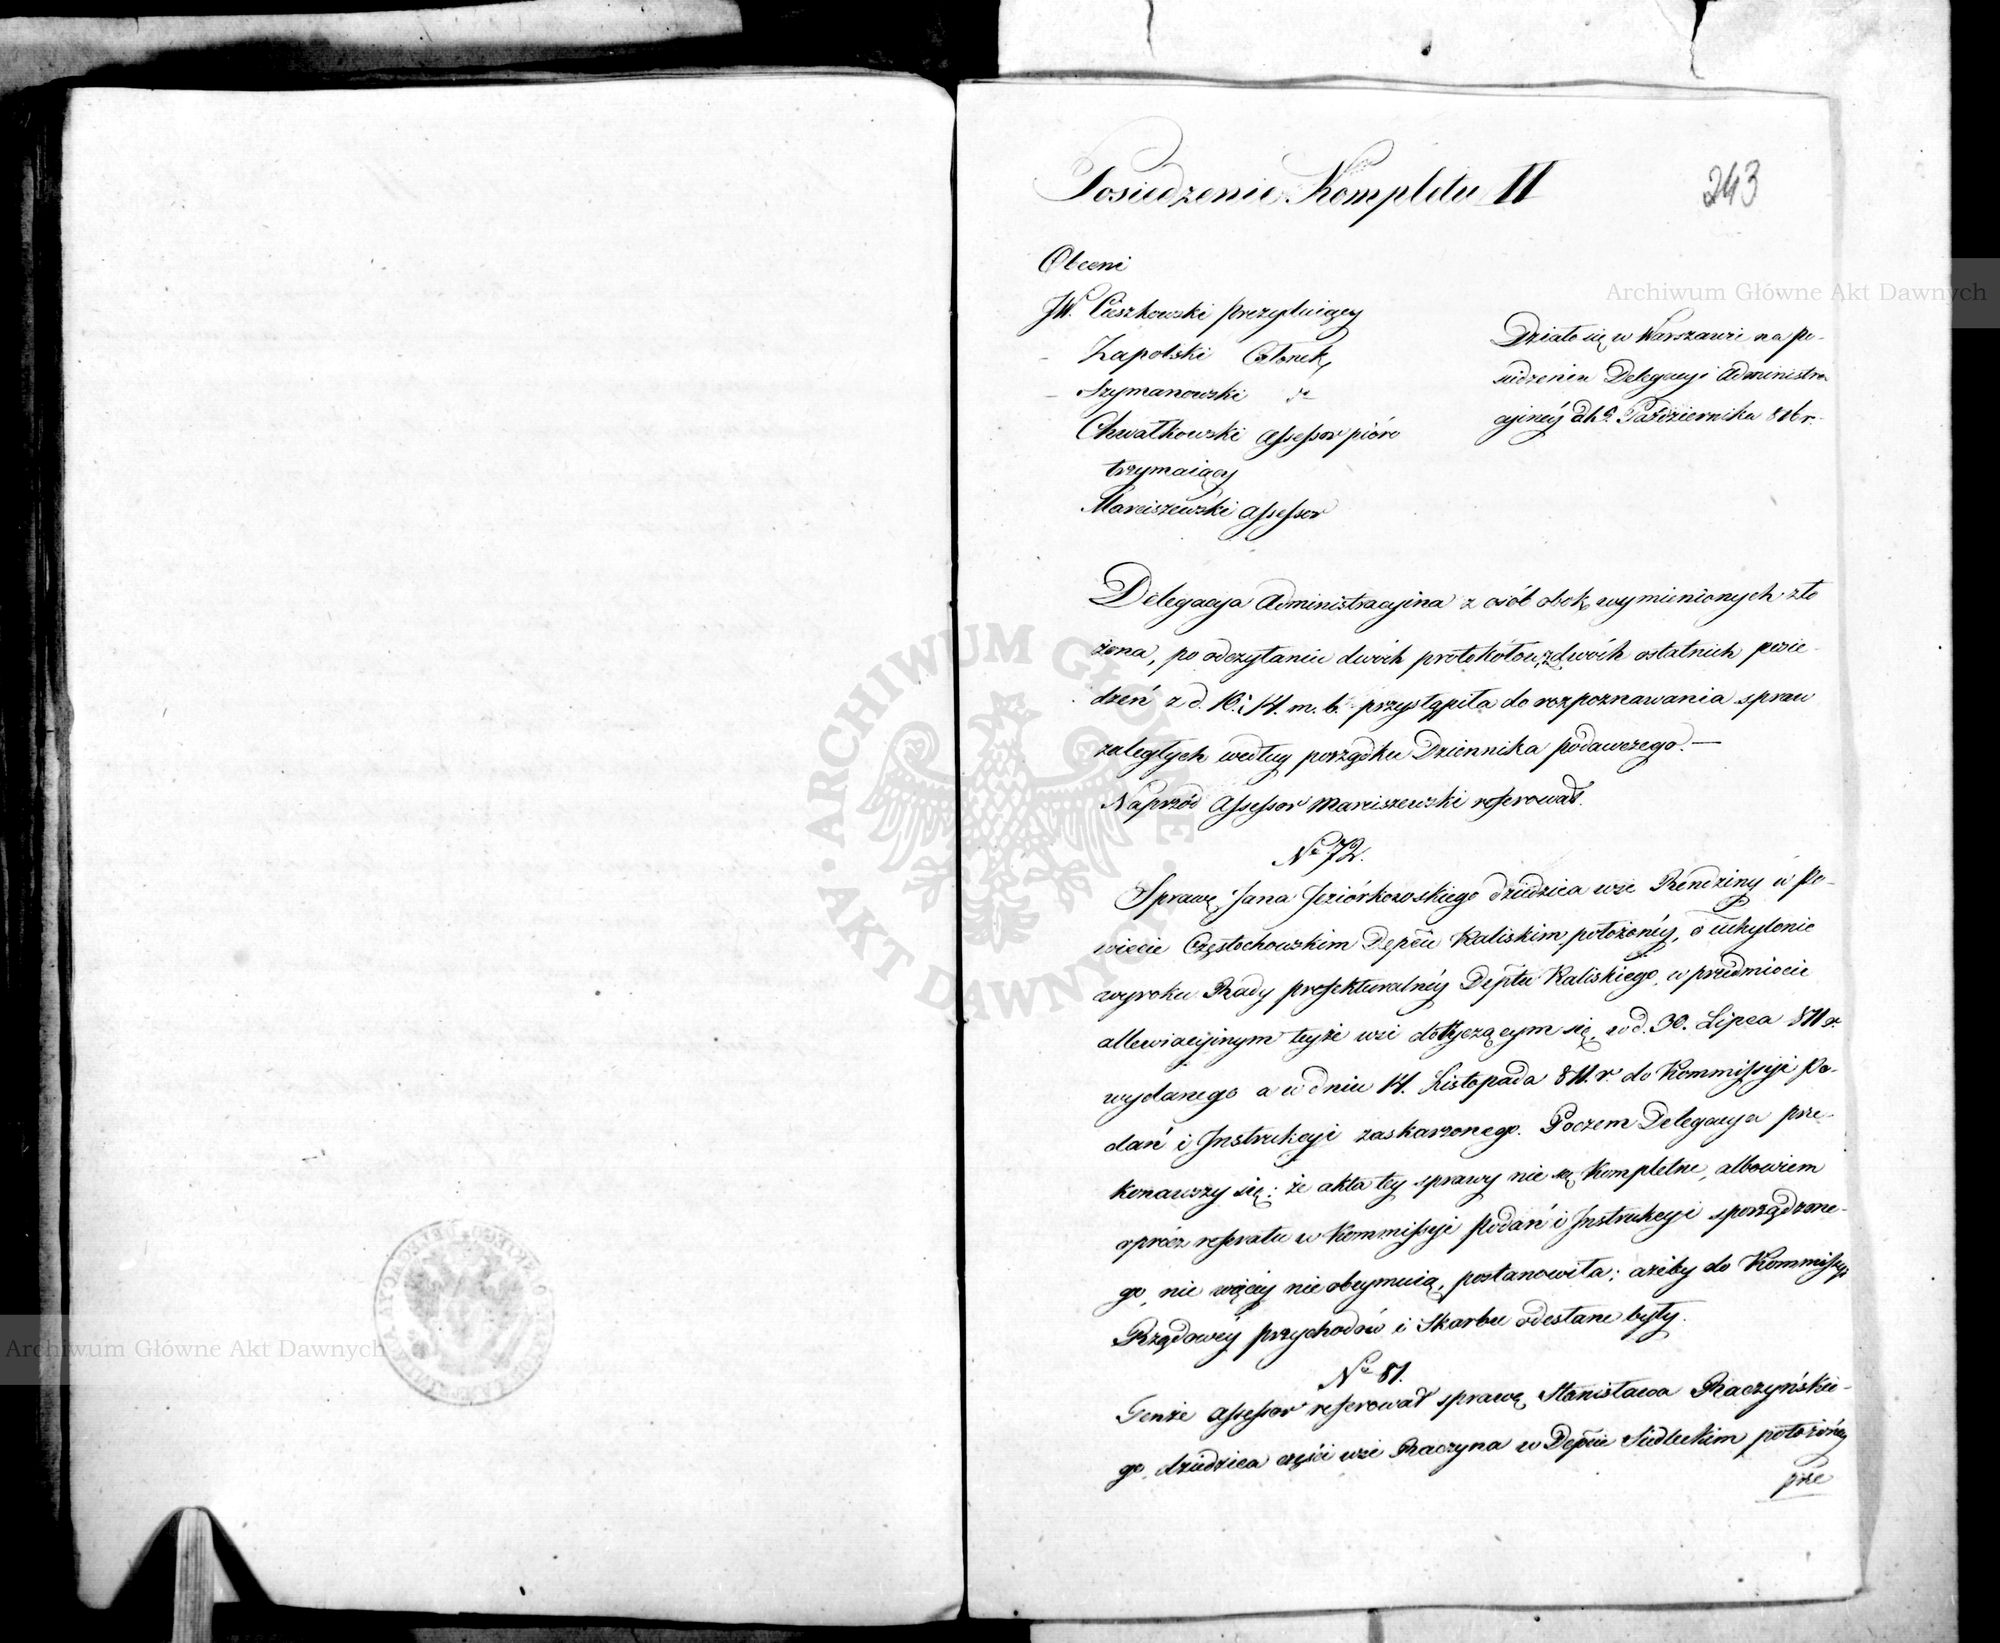 Posiedzenie Kompletu II
243
Obecni
JW. Cieszkowski prezyduiący
Zapolski Członek
Szymanowski dt
Chwalkowski Assessor pióro
trzymaiący
Marciszewski Assessor
Działo się w Warszawie na po-
siedzeniu Delegacyi Administra
cyiney Października 816 r.
Delegacya Administracyina z osób obok wymienionych zło
żona, po odczytaniu dwóch protokołów, z dwóch ostatnich posie-
dzeń z d. 10. i 14. m. b. przystąpiła do rozpoznawania spraw
zaległych według porządku Dziennika podawczego. —
Naprzód Assessor Marciszewski referował.
No 72.
Sprawę Jana Jeziórkowskiego dziedzica wsi Rendziny w Po-
wiecie Częstochowskim Depcie Kaliskim położoney, o uchylenie
wyroku Rady prefekturalney Deptu Kaliskiego, w przedmiocie
allewiacyinym teyże wsi dotyczącym się, w d. 30. Lipca 811 r.
wydanego a w dniu 14. Listopada 811. r. do Kommissyi Po-
dań i Instrukcyi zaskarżonego. Poczem Delegacya prze-
konawszy się; że akta tey sprawy nie są kompletne, albowiem
oprócz referatu w Kommissyi Podań i Instrukcyi sporządzone-
go, nic więcey nie obeymuią, postanowiła; ażeby do Kommissyi
Rządowey przychodów i Skarbu odesłane były.
No 81.
Tenże Assessor referował sprawę Stanisława Raczyńskie-
go, dziedzica części wsi Raczyna w Depcie Siedleckim położoney
prze
Archiwum Główne Akt Dawnych
Archiwum Główne Akt Dawnych
ARCHIWUM GŁÓWNE AKT DAWNYCH